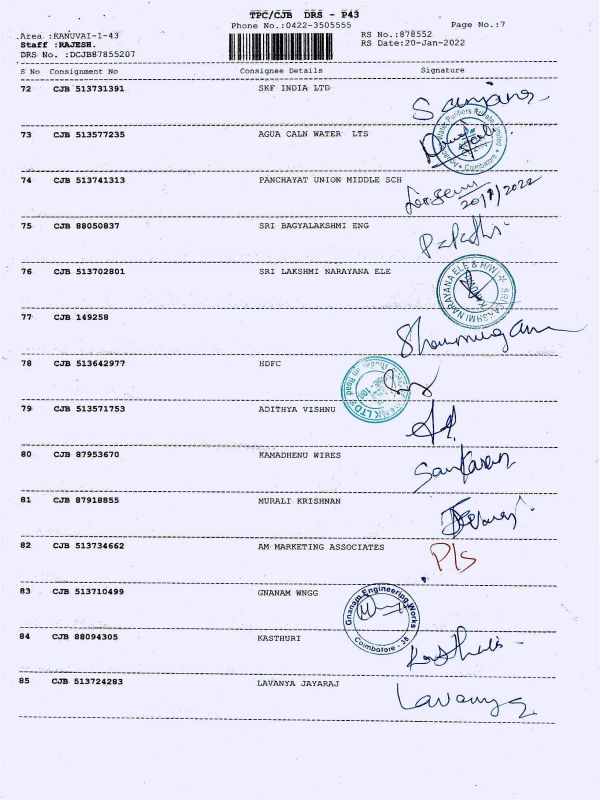 TPC/CJB DRS - P43
Phone No.:0422-3505555 Page No.:7
Area :KANUVAI-1-43 RS No.:878552
Staff :RAJESH. RS Date:20-Jan-2022
DRS No. :DCJB87855207
S No Consignment No Consignee Details Signature
72 CJB 513731391 SKF INDIA LTD
73 CJB 513577235 AGUA CALN WATER LTS
74 CJB 513741313 PANCHAYAT UNION MIDDLE SCH
20/1/2022
75 CJB 88050837 SRI BAGYALAKSHMI ENG
76 CJB 513702801 SRI LAKSHMI NARAYANA ELE
SRI LAKSHMI NARAYANA ELE & H/W
77 CJB 149258
Shanmugam
78 CJB 513642977 HDFC
79 CJB 513571753 ADITHYA VISHNU
80 CJB 87953670 KAMADHENU WIRES
Sankaran
81 CJB 87918855 MURALI KRISHNAN
82 CJB 513734662 AM MARKETING ASSOCIATES
P/s
83 CJB 513710499 GNANAM WNGG
Gnanam Engineering Works
Coimbatore - 38
84 CJB 88094305 KASTHURI
85 CJB 513724283 LAVANYA JAYARAJ
Lavanya